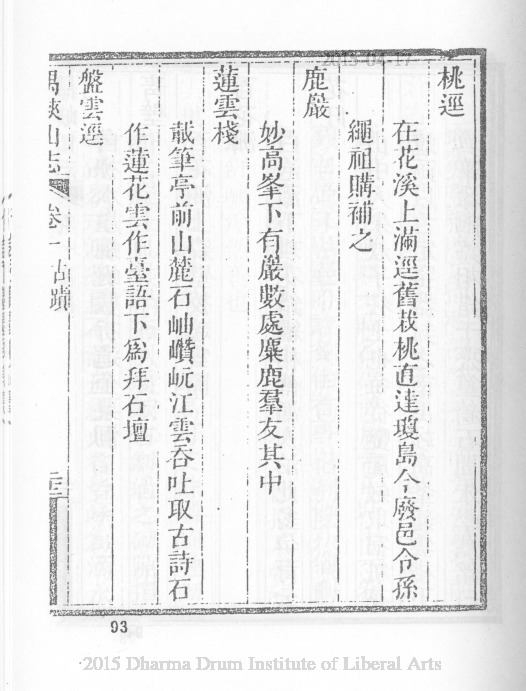 2015-04-17
桃逕
在花溪上滿逕舊栽桃直達瓊島今廢邑令孫
繩祖購補之
鹿巖
妙高峯下有巖數處麋鹿羣友其中
蓮雲棧
載筆亭前山麓石岫巑岏江雲吞吐取古詩石
作蓮花雲作臺語下為拜石壇
盤雲逕
禺峽山志 卷一 古蹟
93
2015 Dharma Drum Institute of Liberal Arts